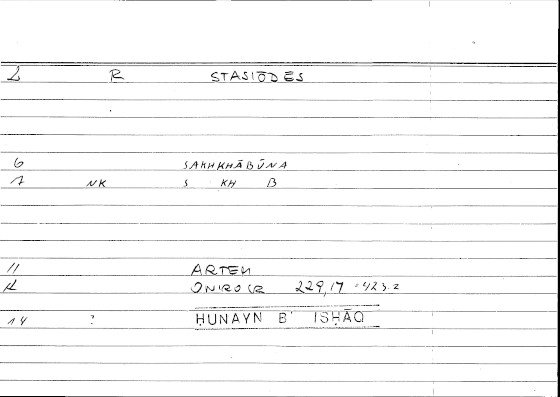 2 R STASIŌDĒS
6 SAKHKHĀBŪNA
7 NK S KH B
11 ARTEM
12 ONIROCR 229,17 = 423.2
14 ? ḤUNAYN B' ISḤĀQ